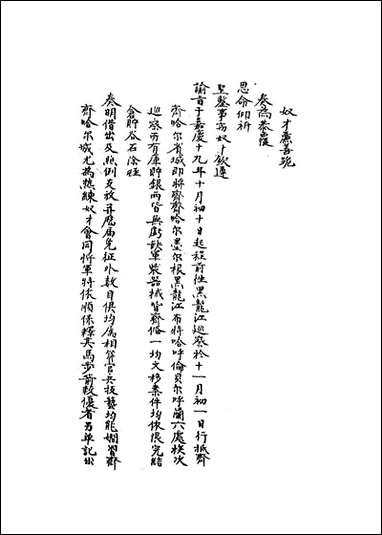 奴才惠喜跪
奏為恭覆
恩命仰祈
聖鑒事竊奴才欽遵
諭旨于嘉慶十九年十月初十日起程前往黑龍江巡察於十一月初一日行抵齊
齊哈尔省城即將齊齊哈尔墨尔根黑龍江布特哈呼倫貝尔呼蘭六處挨次
巡察所有庫貯銀両皆無虧缺軍裝器械皆齊俻一均文移案件均依限完結
倉貯谷石除經
奏明借出及照例支放并應属免征外数目俱均属相符官兵技藝均能嫻習齊
齊哈尔城尤為熟練奴才會同将軍特依順保釋其馬步箭較優者另单記出